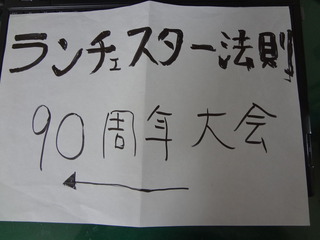 ランチェスター法則
90周年大会